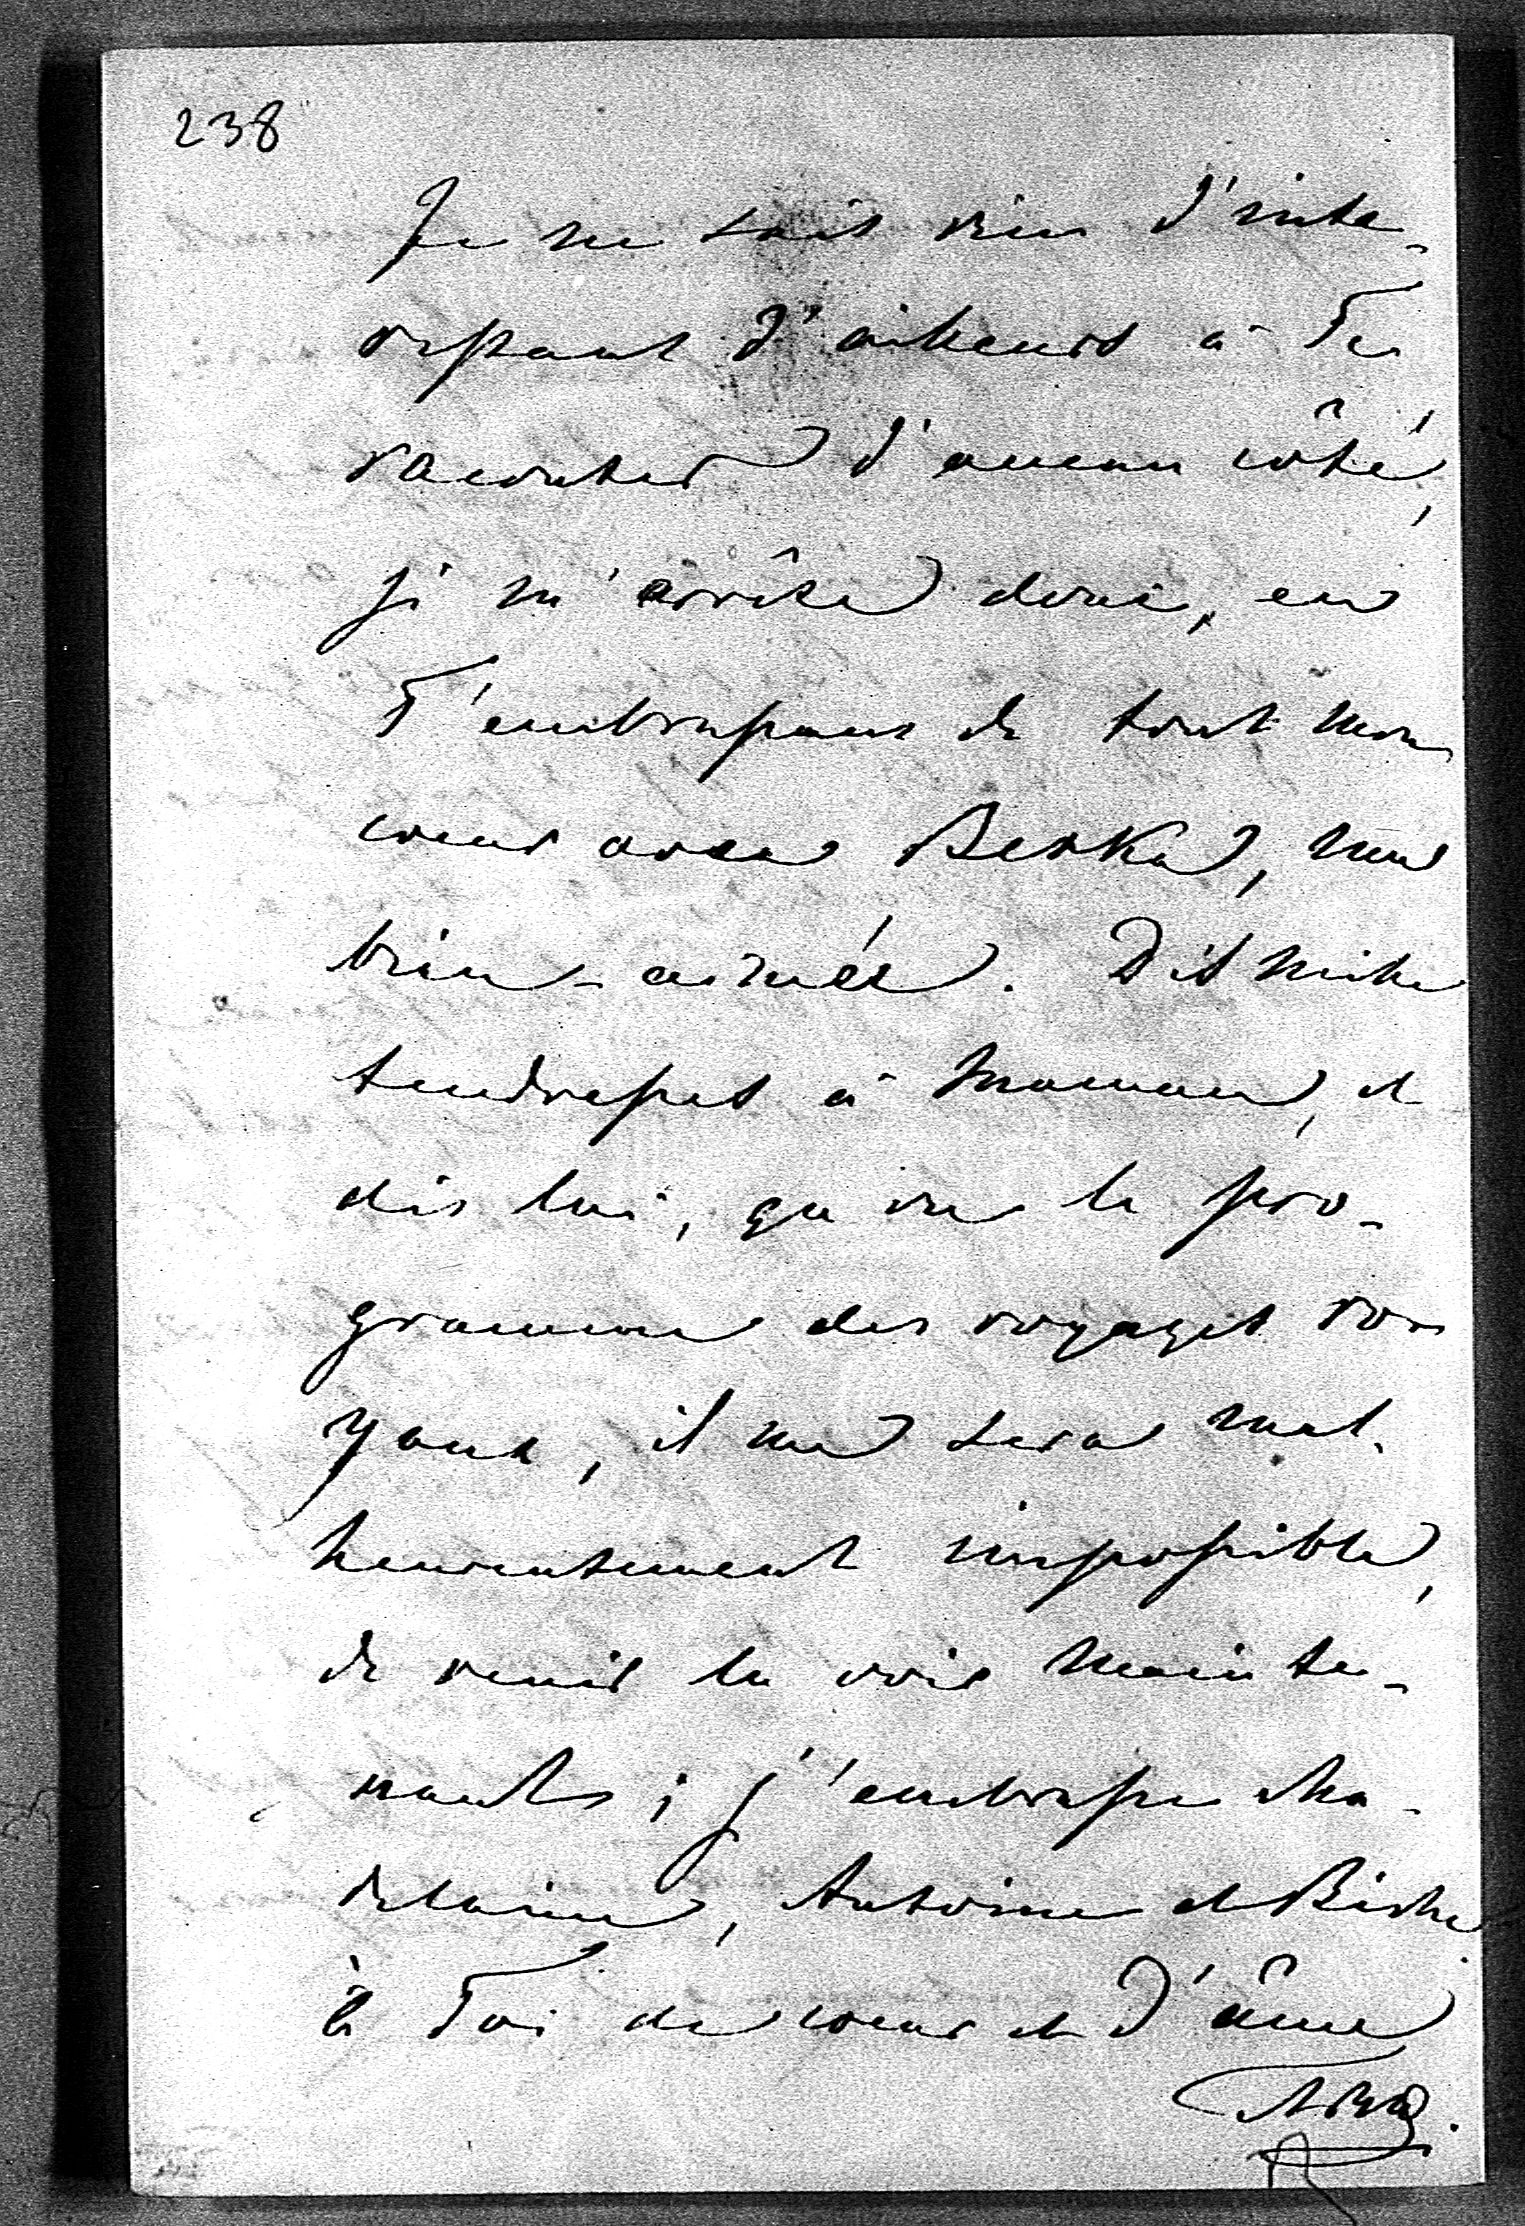 238
Je ne sais rien d'inté-
ressant d'ailleurs à Te
raconter d'aucun côté,
je m'arrête donc, en
T'embrassant de tout mon
coeur avec Berka, ma
bien-aimée. Dis mille
tendresses à Maman, et
dis lui, qu'vu le pro-
gramme des voyages ro-
yaux, il me sera mal-
heureusement impossible,
de venir la voir mainte-
nant; j'embrasse Ma-
delaine, Antoine et Bishe
à Toi de coeur et d'âme